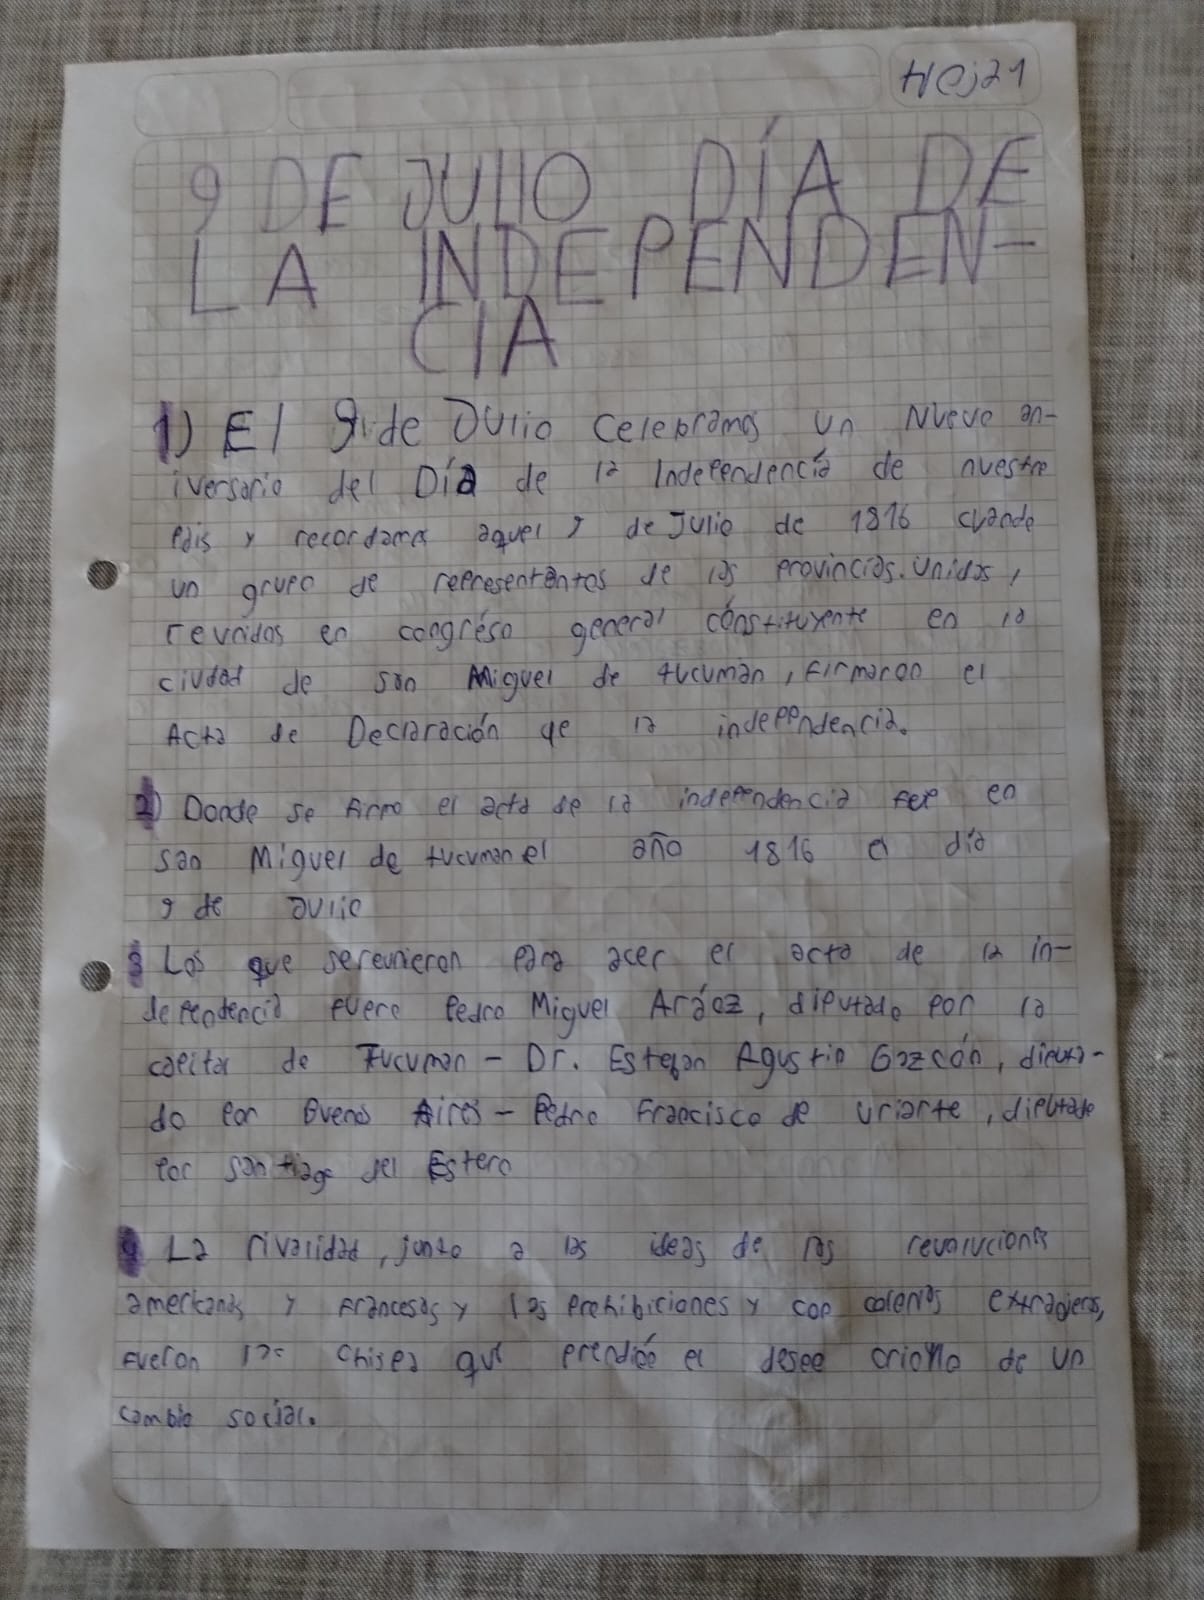 Hoja1
9 DE JULIO DÍA DE
LA INDEPENDEN-
CIA
1) El 9 de Julio celebramos un Nuevo an-
iversario del Día de la Independencia de nuestro
país y recordamos aquel 9 de Julio de 1816 cuando
un grupo de representantes de las provincias Unidas,
reunidos en congréso general constituyente en la
ciudad de san Miguel de tucumán, firmaron el
Acta de Declaración de la independencia.
2) Donde se firmo el acta de la independencia fue en
san Miguel de tucuman el año 1816 a día
9 de Julio
3 Los que sereunieron para acer el acta de la in-
dependencia fuero Pedro Miguel Aráoz, diputado por la
capital de Tucuman - Dr. Esteban Agustin Gazcón, diputa-
do por Buenos Aires - Pedro Francisco de Uriarte, diputado
por santiago del Estero
4 La rivalidad, junto a las ideas de las revoluciones
americanas y francesas y las prohibiciones y con extrajeros,
fueron la chispa que prendió el deseo criollo de un
cambio social.